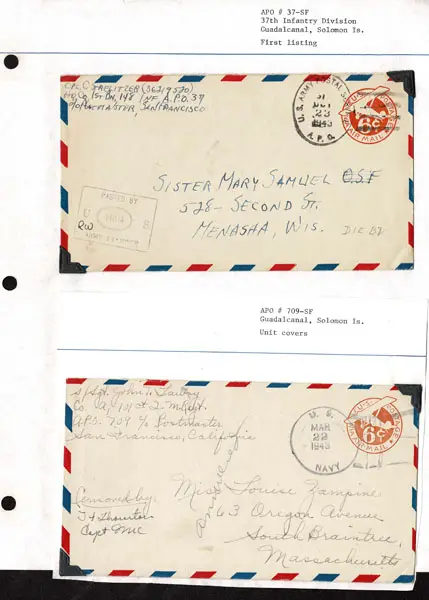 APO # 37-SF
37th Infantry Division
Guadalcanal, Solomon Is.
First listing
CPL C STREDITZER (36219570)
HQ CO. 1ST BN, 148 INF A.P.O. 37
% POSTMASTER, SAN FRANCISCO
U.S. ARMY POSTAL S
23
1943
A.P.O.
U.S. POSTAGE
6¢
VIA AIR MAIL
PASSED BY
U S
ARMY EXAMINER
SISTER MARY SAMUEL O.S.F
528 - SECOND ST.
MENASHA, WIS.
DIE B2
APO # 709-SF
Guadalcanal, Solomon Is.
Unit covers
S/Sgt. John T.
Co. A, 101st
A.P.O. 709 % Postmaster
San Francisco, California
U. S.
MAR
22
1943
NAVY
U.S. POSTAGE
6¢
VIA AIR MAIL
Censored by:
Capt MC
Miss Louise Zampine
63 Oregon Avenue
South Braintree,
Massachusetts